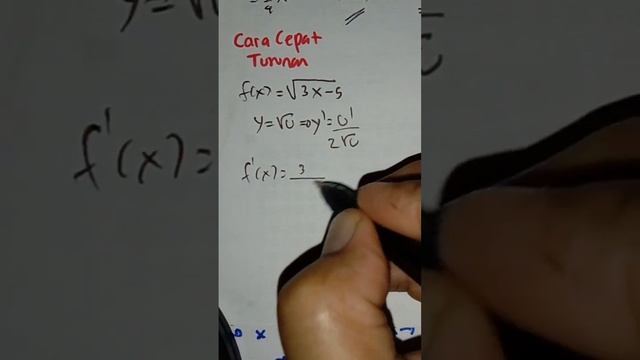 Cara Cepat
Turunan
f(x) = √3x-5
y = √U ⇒ y' = U'/2√U
f'(x) = 3